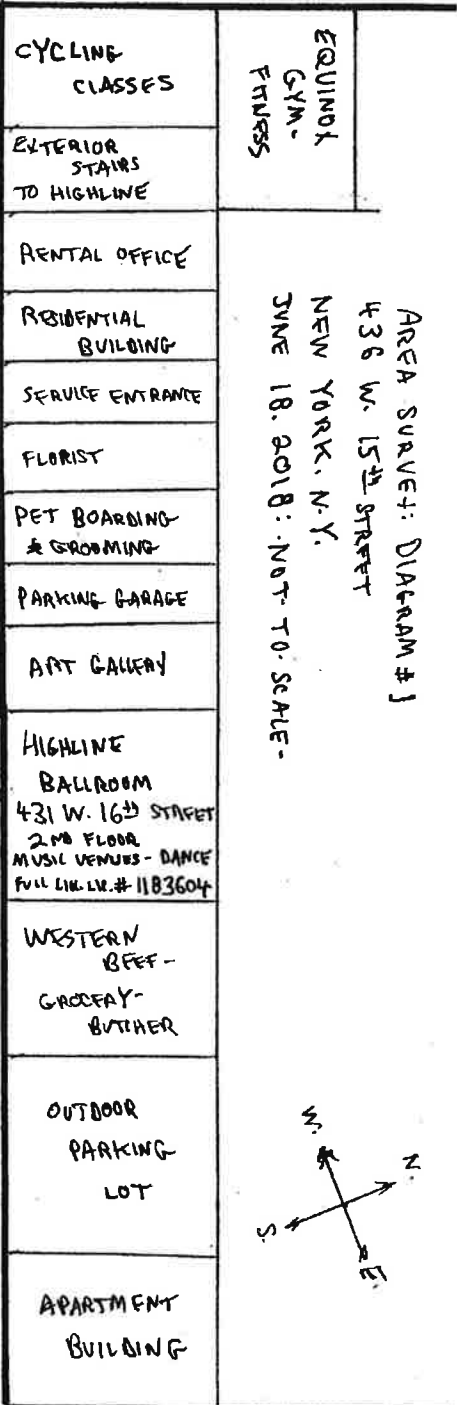 CYCLING
CLASSES
EXTERIOR
STAIRS
TO HIGHLINE
RENTAL OFFICE
RESIDENTIAL
BUILDING
SERVICE ENTRANCE
FLORIST
PET BOARDING
& GROOMING
PARKING GARAGE
ART GALLERY
HIGHLINE
BALLROOM
431 W. 16th STREET
2ND FLOOR
MUSIC VENUES - DANCE
FULL LIK. LIK. # 1183604
WESTERN
BEEF -
GROCERY -
BUTCHER
OUTDOOR
PARKING
LOT
APARTMENT
BUILDING
EQUINOX
GYM -
FITNESS
AREA SURVEY: DIAGRAM # 1
436 W. 15th STREET
NEW YORK, N.Y.
JUNE 18. 2018: - NOT - TO - SCALE -
W.
N.
S.
E.